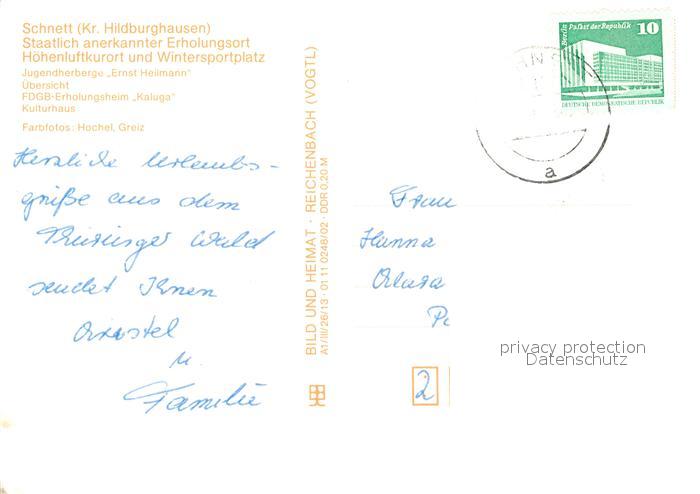 Schnett (Kr. Hildburghausen)
Staatlich anerkannter Erholungsort
Höhenluftkurort und Wintersportplatz
Jugendherberge „Ernst Heilmann"
Übersicht
FDGB-Erholungsheim „Kaluga"
Kulturhaus
Farbfotos: Hochel, Greiz
Herzliche Urlaubs-
grüße aus dem
Thüringer Wald
sendet Ihnen
u.
Familie
BILD UND HEIMAT · REICHENBACH (VOGTL)
A1/III/26/13 · 01 11 0248/02 · DDR 0,20 M
Berlin Palast der Republik 10
DEUTSCHE DEMOKRATISCHE REPUBLIK
a
Frau
Hanna
2
privacy protection
Datenschutz